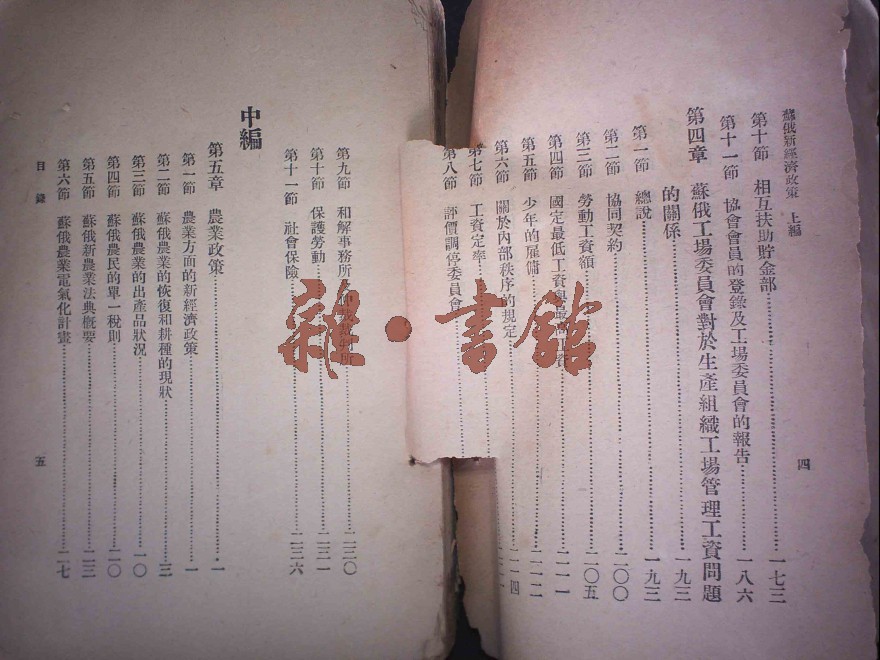 蘇俄新經濟政策 上編
四
第十節 相互扶助貯金部……一七三
第十一節 協會會員的登錄及工場委員會的報告……一八六
第四章 蘇俄工場委員會對於生產組織工場管理工資問題
的關係……一九三
第一節 總說……一九三
第二節 協同契約……二〇〇
第三節 勞動工資額……二〇五
第四節 國定最低工資與最高工資……二一一
第五節 少年的雇傭……二一二
第六節 關於內部秩序的規定……二一四
第七節 工資定率
第八節 評價調停委員會
第九節 和解事務所……二三〇
第十節 保護勞動……二三一
第十一節 社會保險……二三六
中編
第五章 農業政策……一
第一節 農業方面的新經濟政策……一
第二節 蘇俄農業的恢復和耕種的現狀……三
第三節 蘇俄農業的出產品狀況……一〇
第四節 蘇俄農民的單一稅則……二〇
第五節 蘇俄新農業法典概要……二三
第六節 蘇俄農業電氣化計畫……二七
目錄
五
雜·書館